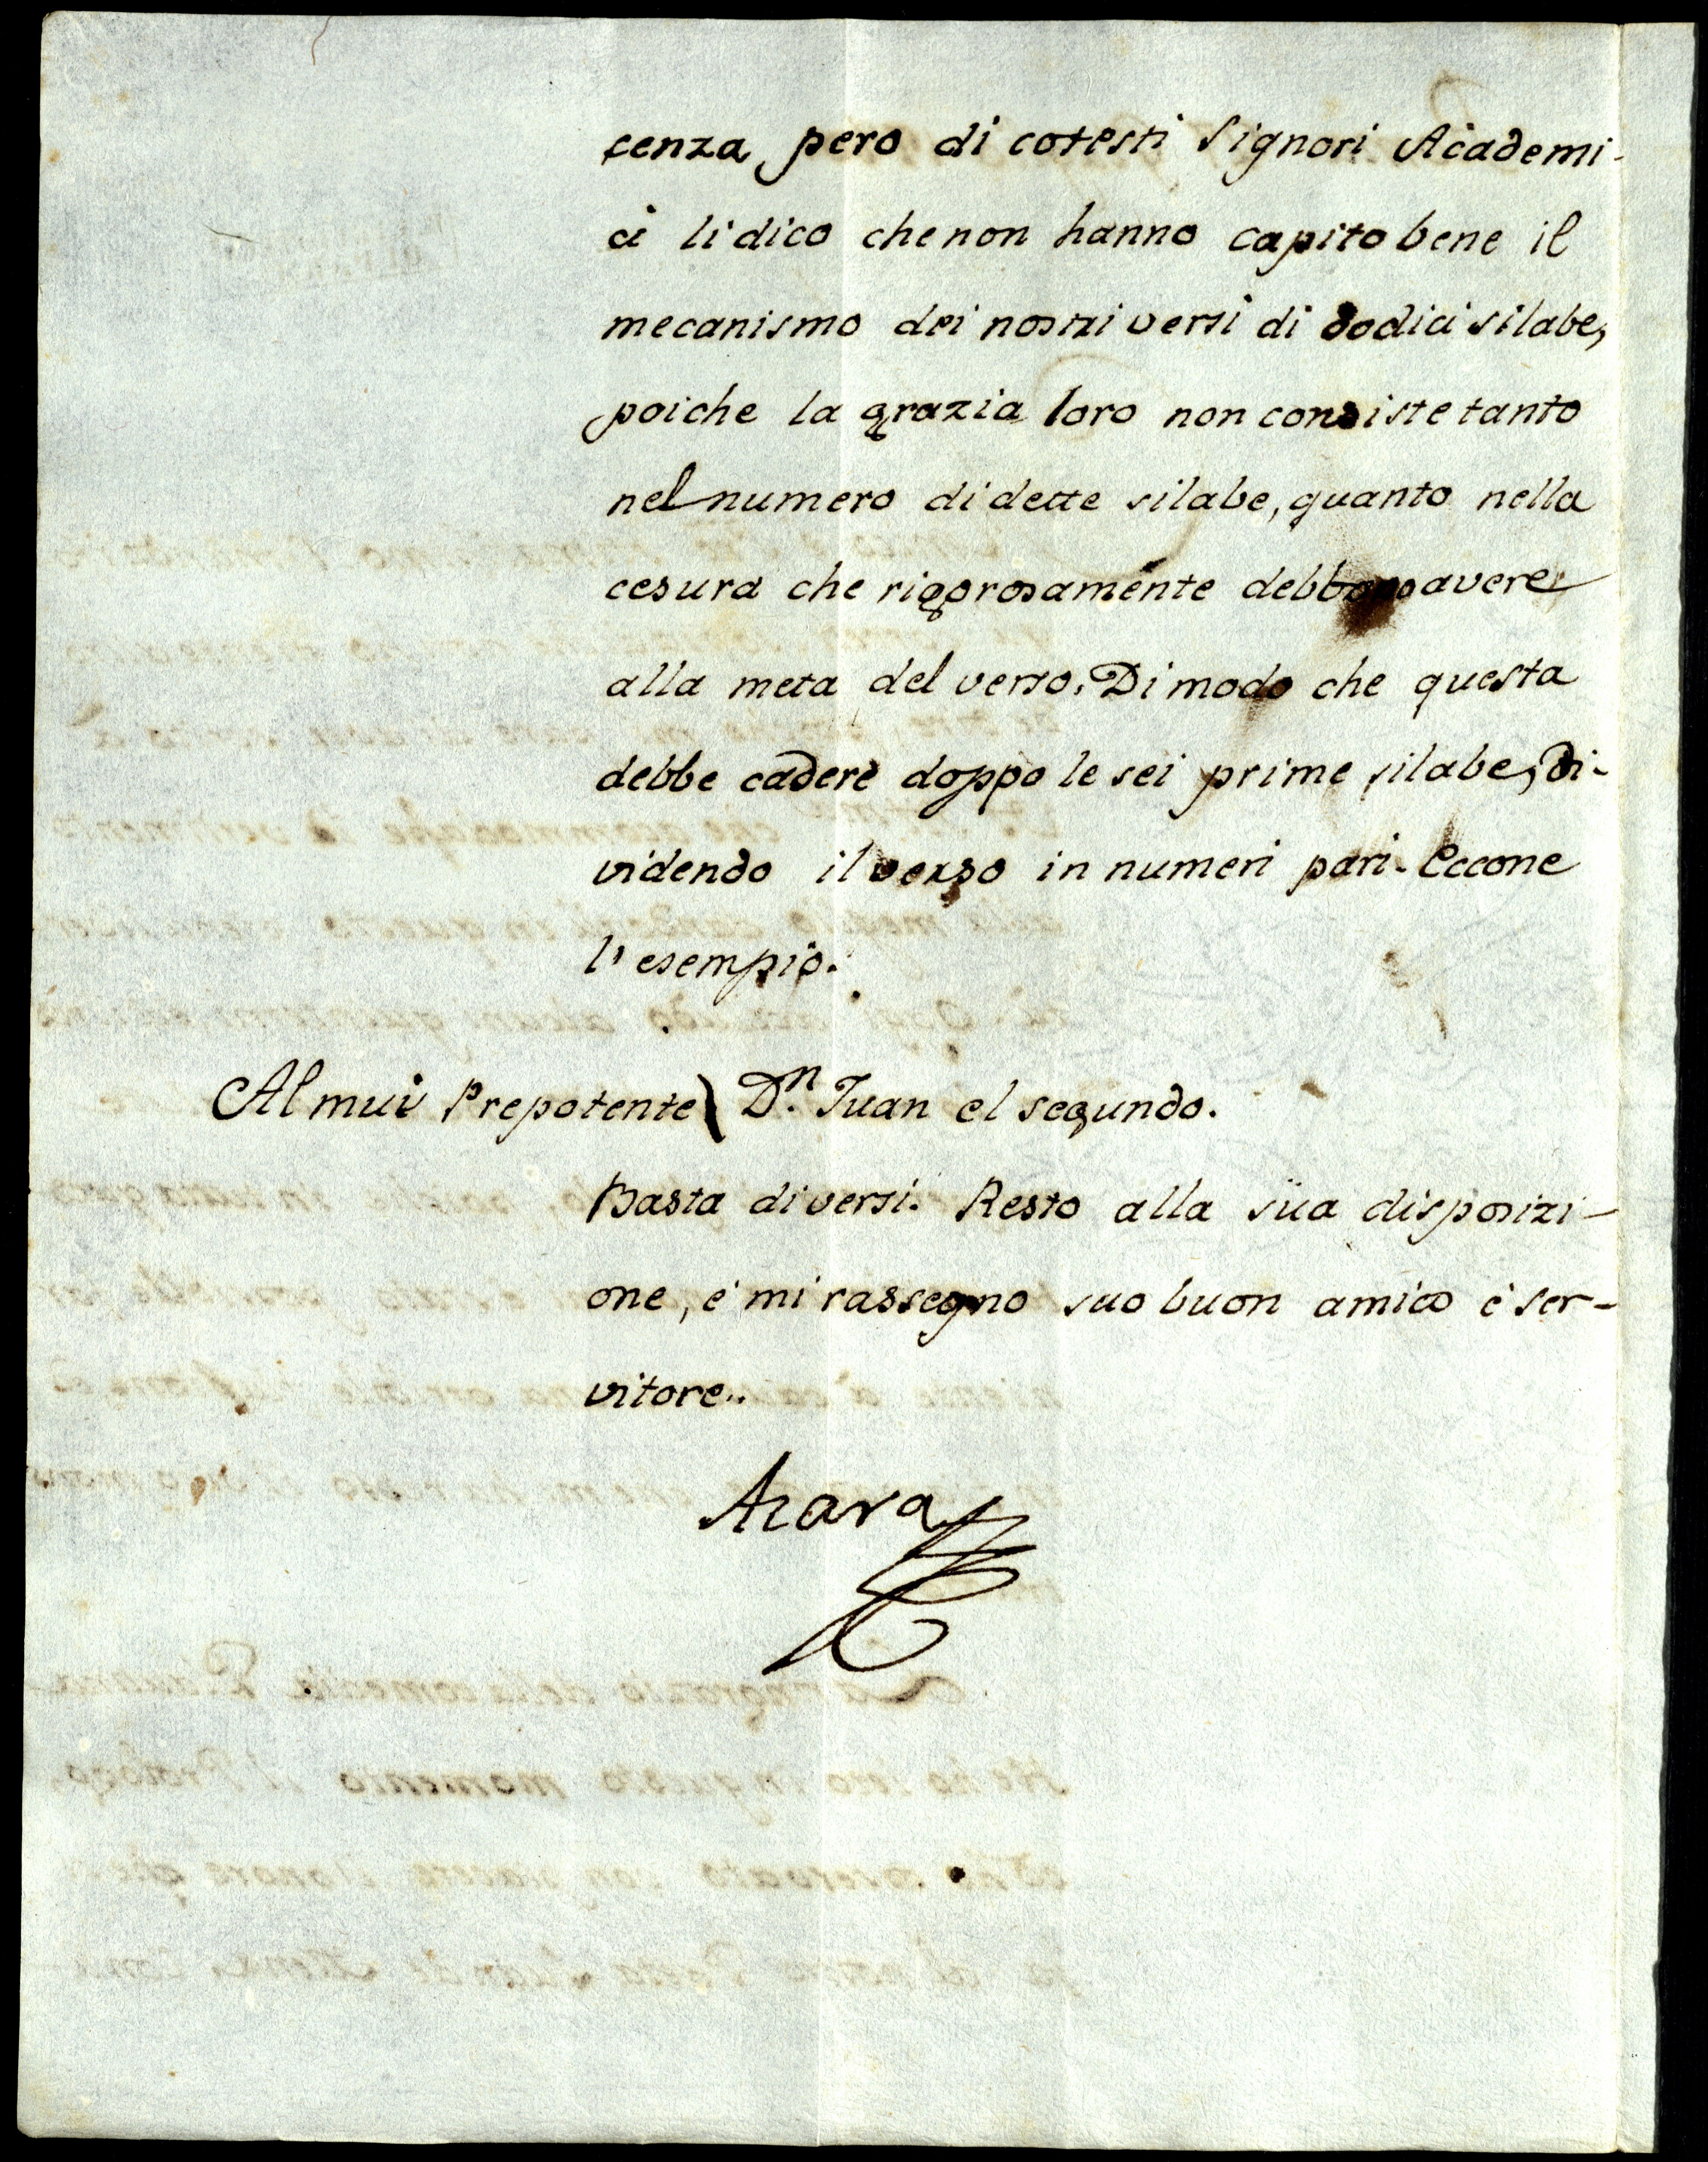 cenza pero di cotesti Signori Academi-
ci li dico che non hanno capito bene il
mecanismo dei nostri versi di dodici silabe,
poiche la grazia loro non consiste tanto
nel numero di dette silabe, quanto nella
cesura che rigorosamente debbono avere
alla meta del verso. Di modo che questa
debbe cadere doppo le sei prime silabe, di-
videndo il verso in numeri pari. Eccone
l'esempio.
Al mui Prepotente \ Dn. Juan el segundo.
Basta di versi. Resto alla sua disposizi-
one, e mi rassegno suo buon amico e ser-
vitore..
Azara